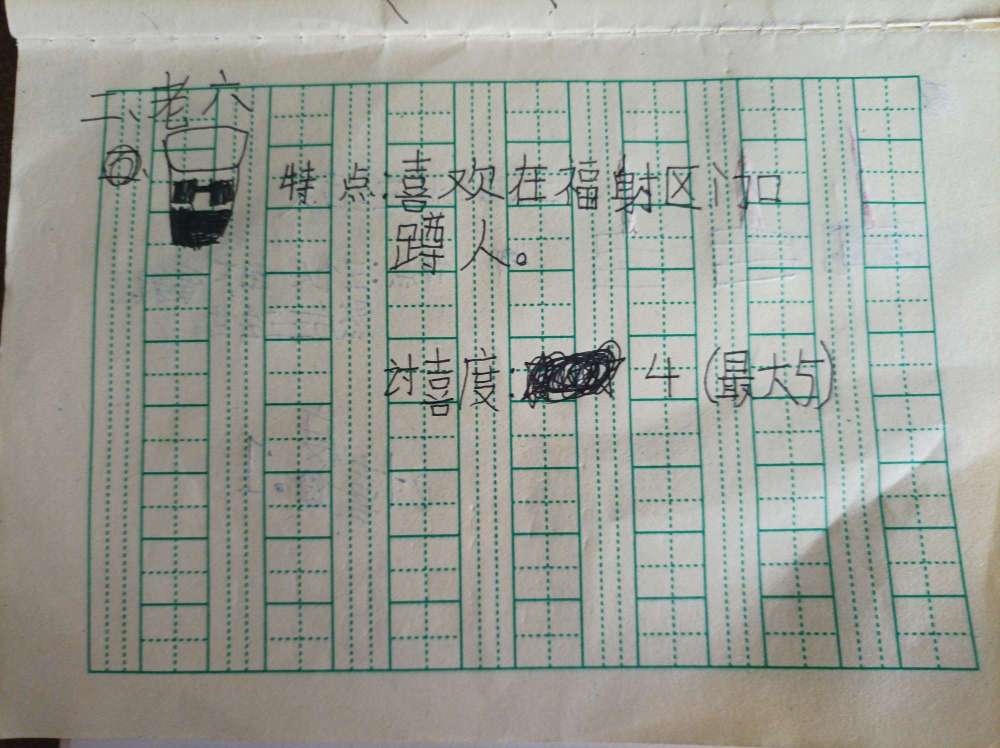 二、老六
特点:喜欢在福射区门口
蹲人。
讨喜度: 4 (最大5)